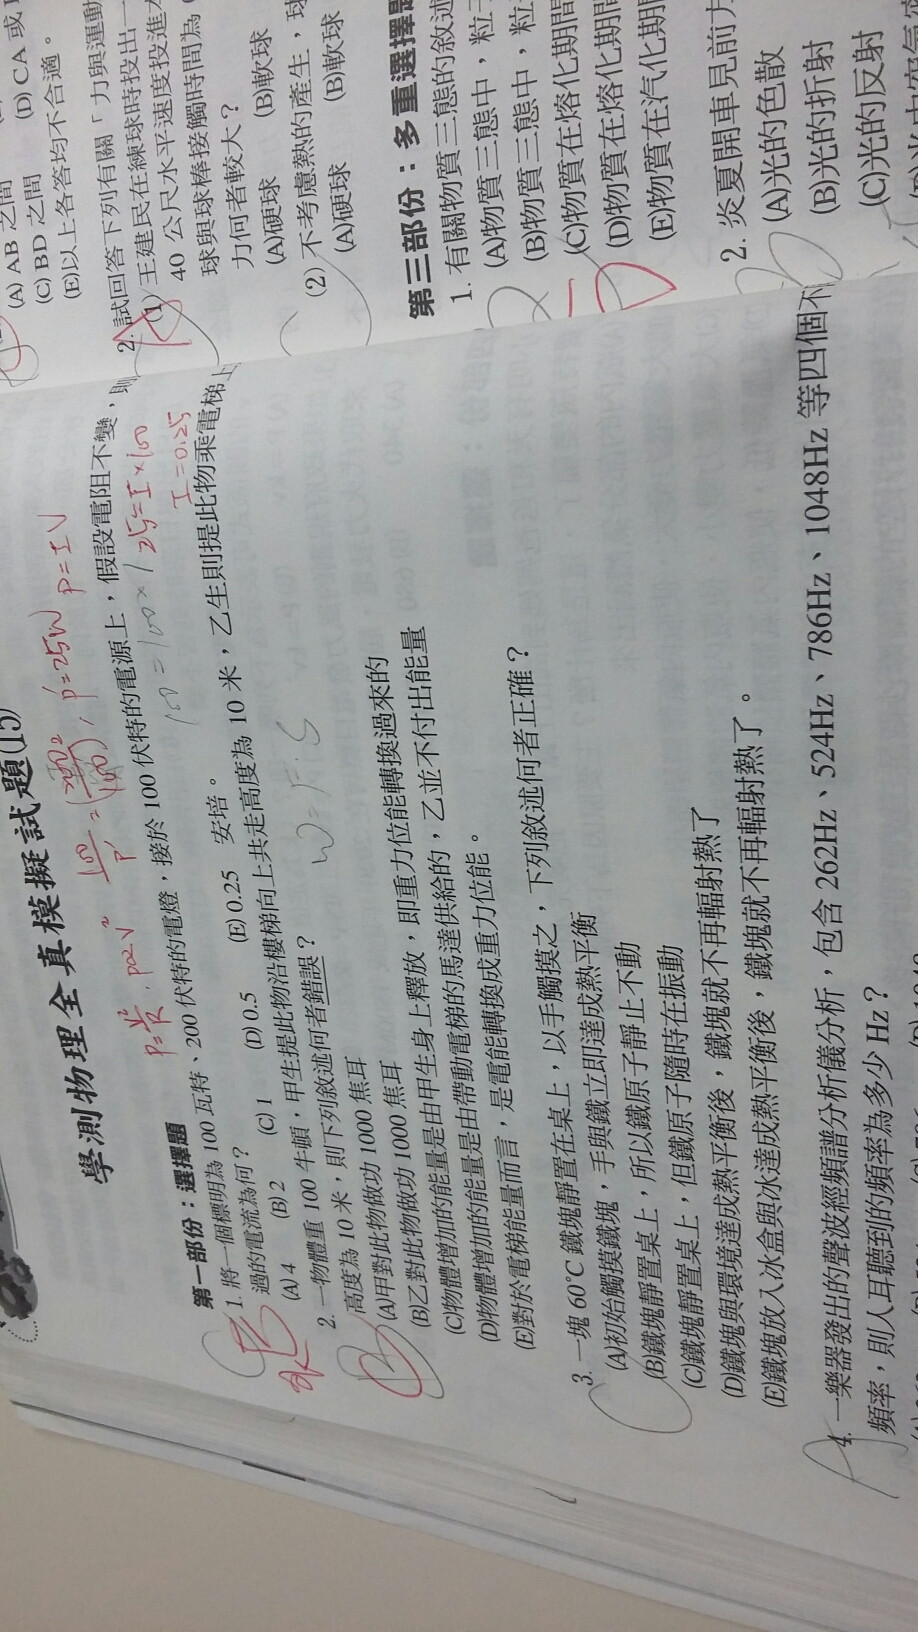 學測物理全真模擬試題(15)
P=IV
P=25W
W=F·S
100=100×1
25=I×100
I=0.25
第一部份：選擇題
1. 將一個標明為 100 瓦特、200 伏特的電燈，接於 100 伏特的電源上，假設電阻不變，則
過的電流為何？
(A) 4 (B) 2 (C) 1 (D) 0.5 (E) 0.25 安培。
2. 一物體重 100 牛頓，甲生提此物沿樓梯向上共走高度為 10 米，乙生則提此物乘電梯上
高度為 10 米，則下列敘述何者錯誤？
(A)甲對此物做功 1000 焦耳
(B)乙對此物做功 1000 焦耳
(C)物體增加的能量是由甲生身上釋放，即重力位能轉換過來的
(D)物體增加的能量是由帶動電梯的馬達供給的，乙並不付出能量
(E)對於電梯能量而言，是電能轉換成重力位能。
3. 一塊 60°C 鐵塊靜置在桌上，以手觸摸之，下列敘述何者正確？
(A)初始觸摸鐵塊，手與鐵立即達成熱平衡
(B)鐵塊靜置桌上，所以鐵原子靜止不動
(C)鐵塊靜置桌上，但鐵原子隨時在振動
(D)鐵塊與環境達成熱平衡後，鐵塊就不再輻射熱了
(E)鐵塊放入冰盒與冰達成熱平衡後，鐵塊就不再輻射熱了。
A
4. 一樂器發出的聲波經頻譜分析儀分析，包含 262Hz、524Hz、786Hz、1048Hz 等四個不
頻率，則人耳聽到的頻率為多少 Hz？
(A) AB 之間 (D) CA 或
(C) BD 之間
(E)以上各答均不合適。
2. 試回答下列有關「力與運動
(1) 王建民在練球時投出一
40 公尺水平速度投進
球與球棒接觸時間為
力何者較大？
(A)硬球 (B)軟球
(2) 不考慮熱的產生，球
(A)硬球 (B)軟球
第三部份：多重選擇題
1. 有關物質三態的敘述
(A)物質三態中，粒
(B)物質三態中，粒
(C)物質在熔化期間
(D)物質在熔化期間
(E)物質在汽化期間
2. 炎夏開車見前方
(A)光的色散
(B)光的折射
(C)光的反射